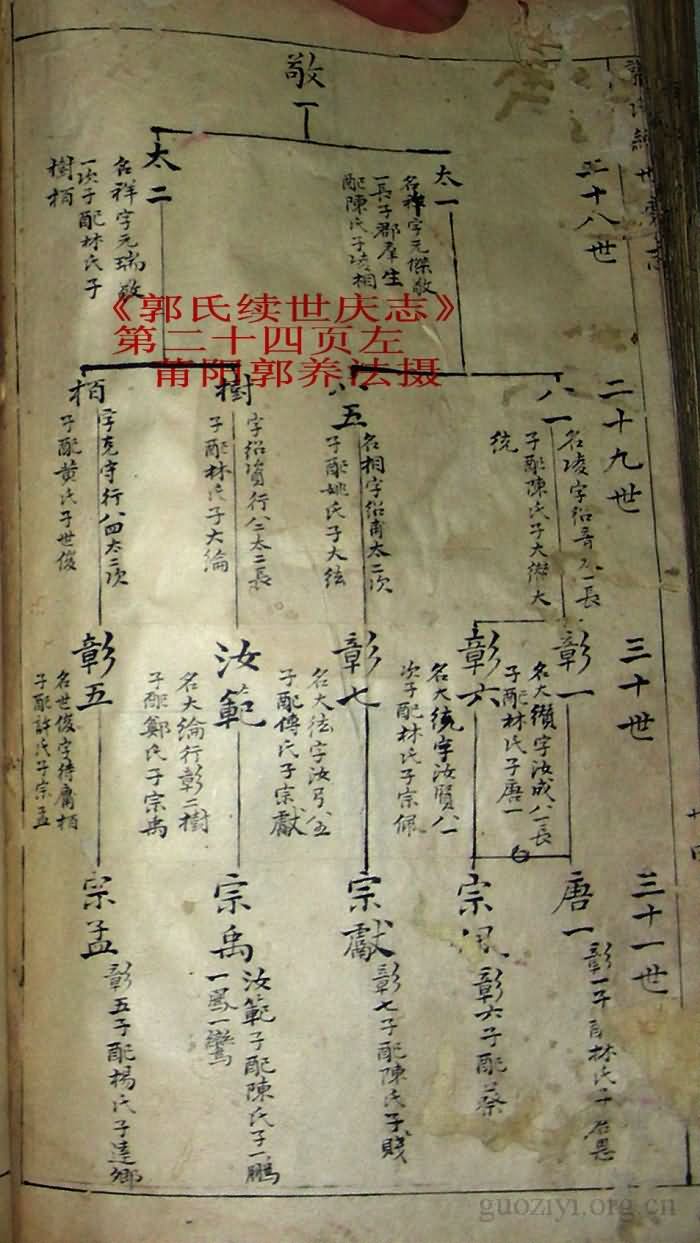 敬一
二十八世
太一
名禅字元傑敬
一長子郡庠生
配陳氏子凌相
太二
名祥字元瑞敬
一次子配林氏子
樹栢
《郭氏续世庆志》
第二十四页左
莆阳郭养法摄
二十九世
八一
名凌字紹晉太一長
子配陳氏子大纘大
統
八五
名相字紹甫太二次
子配姚氏子大絃
樹
字紹資行八二太二長
子配林氏子大綸
栢
字克守行八四太二次
子配黄氏子世俊
三十世
彰一
名大纘字汝成八一長
子配林氏子唐一
彰六
名大統字汝賢八一
次子配林氏子宗佩
彰七
名大絃字汝弓八五
子配傅氏子宗獻
汝範
名大綸行彰二樹
子配鄭氏子宗禹
彰五
名世俊字待庸栢
子配許氏子宗孟
廿四
三十一世
唐一
彰一子配林氏子
宗佩
彰六子配蔡
宗獻
彰七子配陳氏子賤
宗禹
汝範子配陳氏子一鵬
一鳳一鸞
宗孟
彰五子配楊氏子達卿
guoziyi.org.cn